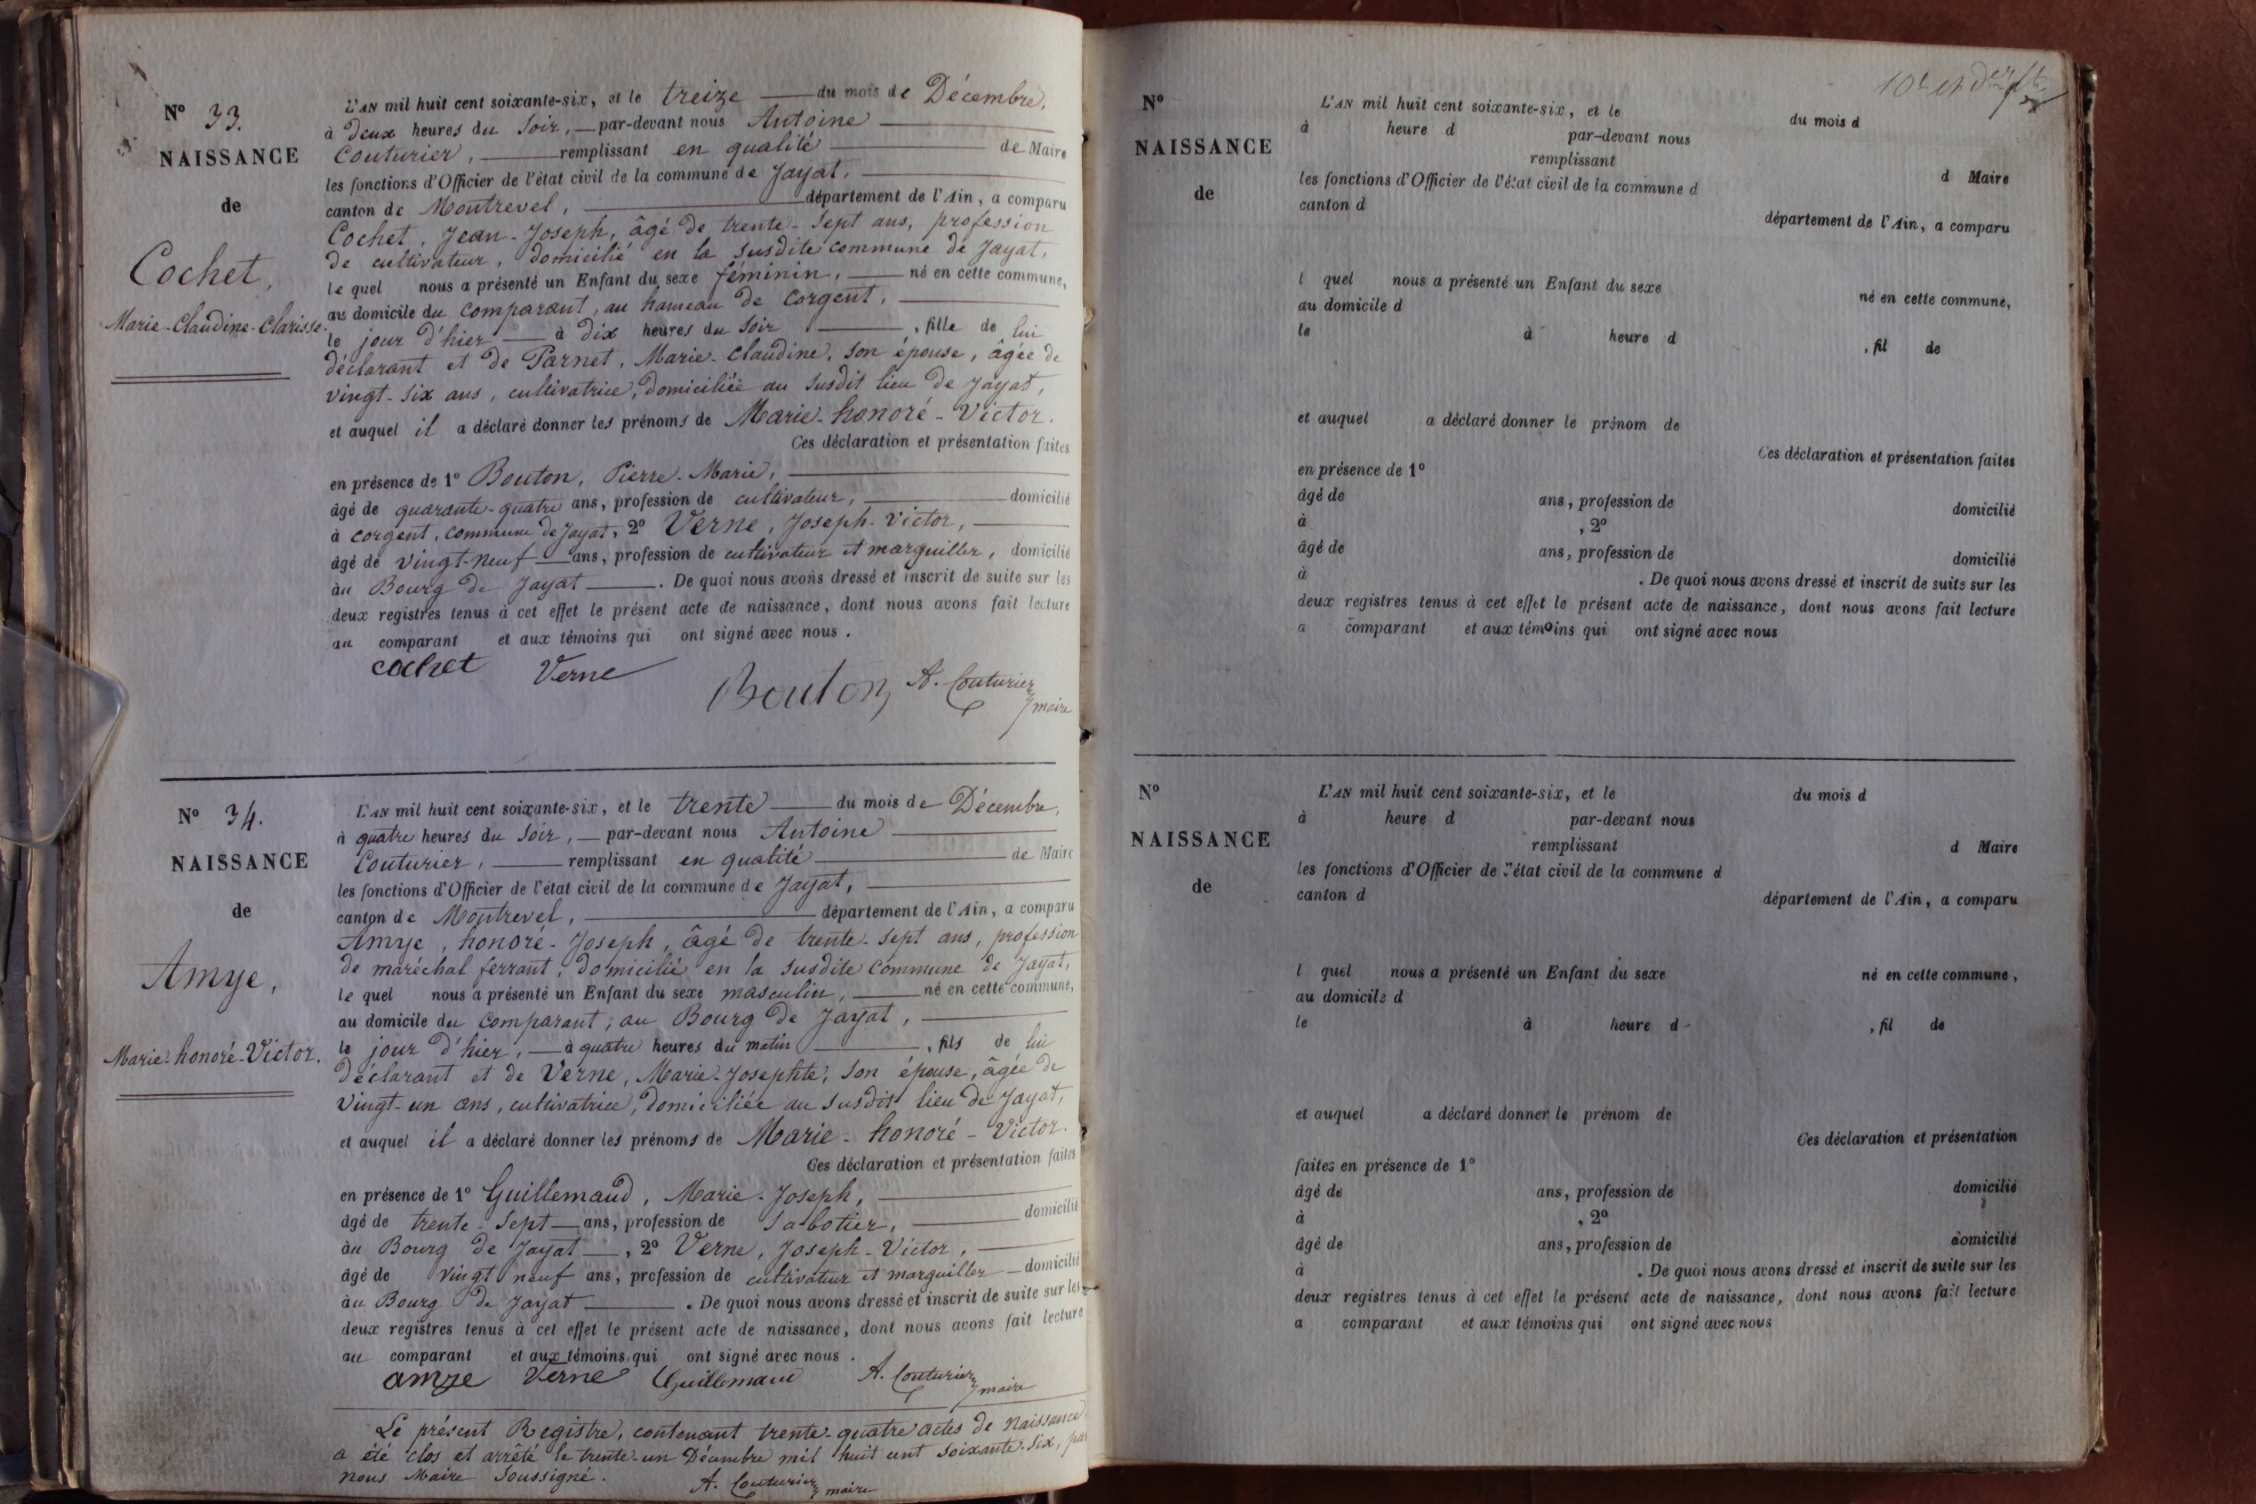 N° 33.
NAISSANCE
de
Cochet,
Marie-Claudine-Clarisse.
L'AN mil huit cent soixante-six, et le treize du mois de Décembre,
à deux heures du soir, par-devant nous Antoine
Couturier, remplissant en qualité de Maire
les fonctions d'Officier de l'état civil de la commune de Jayat,
canton de Montrevel, département de l'Ain, a comparu
Cochet, Jean-Joseph, âgé de trente-sept ans, profession
de cultivateur, domicilié en la susdite commune de Jayat,
le quel nous a présenté un Enfant du sexe féminin, né en cette commune,
au domicile du comparant, au hameau de Corgent,
le jour d'hier à dix heures du soir, fille de lui
déclarant et de Parnet, Marie-Claudine, son épouse, âgée de
vingt-six ans, cultivatrice, domiciliée au susdit lieu de Jayat,
et auquel il a déclaré donner les prénoms de Marie-honoré-Victor.
Ces déclaration et présentation faites
en présence de 1° Bouton, Pierre-Marie,
âgé de quarante-quatre ans, profession de cultivateur, domicilié
à Corgent, commune de Jayat, 2° Verne, Joseph-Victor,
âgé de vingt-neuf ans, profession de cultivateur et marguiller, domicilié
au Bourg de Jayat. De quoi nous avons dressé et inscrit de suite sur les
deux registres tenus à cet effet le présent acte de naissance, dont nous avons fait lecture
au comparant et aux témoins qui ont signé avec nous.
cochet Verne Bouton A. Couturier
maire
N° 34.
NAISSANCE
de
Amye,
Marie-honoré-Victor.
L'AN mil huit cent soixante-six, et le trente du mois de Décembre,
à quatre heures du soir, par-devant nous Antoine
Couturier, remplissant en qualité de Maire
les fonctions d'Officier de l'état civil de la commune de Jayat,
canton de Montrevel, département de l'Ain, a comparu
Amye, honoré-Joseph, âgé de trente-sept ans, profession
de maréchal ferrant, domicilié en la susdite commune de Jayat,
le quel nous a présenté un Enfant du sexe masculin, né en cette commune,
au domicile du comparant, au Bourg de Jayat,
le jour d'hier, à quatre heures du matin, fils de lui
déclarant et de Verne, Marie-Josephte, son épouse, âgée de
vingt-un ans, cultivatrice, domiciliée au susdit lieu de Jayat,
et auquel il a déclaré donner les prénoms de Marie-honoré-Victor.
Ces déclaration et présentation faites
en présence de 1° Guillemaud, Marie-Joseph,
âgé de trente-sept ans, profession de sabotier, domicilié
au Bourg de Jayat, 2° Verne, Joseph-Victor,
âgé de vingt neuf ans, profession de cultivateur et marguiller domicilié
au Bourg de Jayat. De quoi nous avons dressé et inscrit de suite sur les
deux registres tenus à cet effet le présent acte de naissance, dont nous avons fait lecture
au comparant et aux témoins qui ont signé avec nous.
amye Verne Guillemaud A. Couturier
maire
Le présent Registre, contenant trente-quatre actes de naissance
a été clos et arrêté le trente-un Décembre mil huit cent soixante-six, par
nous Maire soussigné.
A. Couturier maire
N°
NAISSANCE
de
L'AN mil huit cent soixante-six, et le du mois d
à heure d par-devant nous
remplissant d Maire
les fonctions d'Officier de l'état civil de la commune d
canton d département de l'Ain, a comparu
l quel nous a présenté un Enfant du sexe né en cette commune,
au domicile d
le à heure d , fil de
et auquel a déclaré donner le prénom de
Ces déclaration et présentation faites
en présence de 1°
âgé de ans, profession de domicilié
à , 2°
âgé de ans, profession de domicilié
à . De quoi nous avons dressé et inscrit de suite sur les
deux registres tenus à cet effet le présent acte de naissance, dont nous avons fait lecture
a comparant et aux témoins qui ont signé avec nous
N°
NAISSANCE
de
L'AN mil huit cent soixante-six, et le du mois d
à heure d par-devant nous
remplissant d Maire
les fonctions d'Officier de l'état civil de la commune d
canton d département de l'Ain, a comparu
l quel nous a présenté un Enfant du sexe né en cette commune,
au domicile d
le à heure d , fil de
et auquel a déclaré donner le prénom de
Ces déclaration et présentation
faites en présence de 1°
âgé de ans, profession de domicilié
à , 2°
âgé de ans, profession de domicilié
à . De quoi nous avons dressé et inscrit de suite sur les
deux registres tenus à cet effet le présent acte de naissance, dont nous avons fait lecture
a comparant et aux témoins qui ont signé avec nous